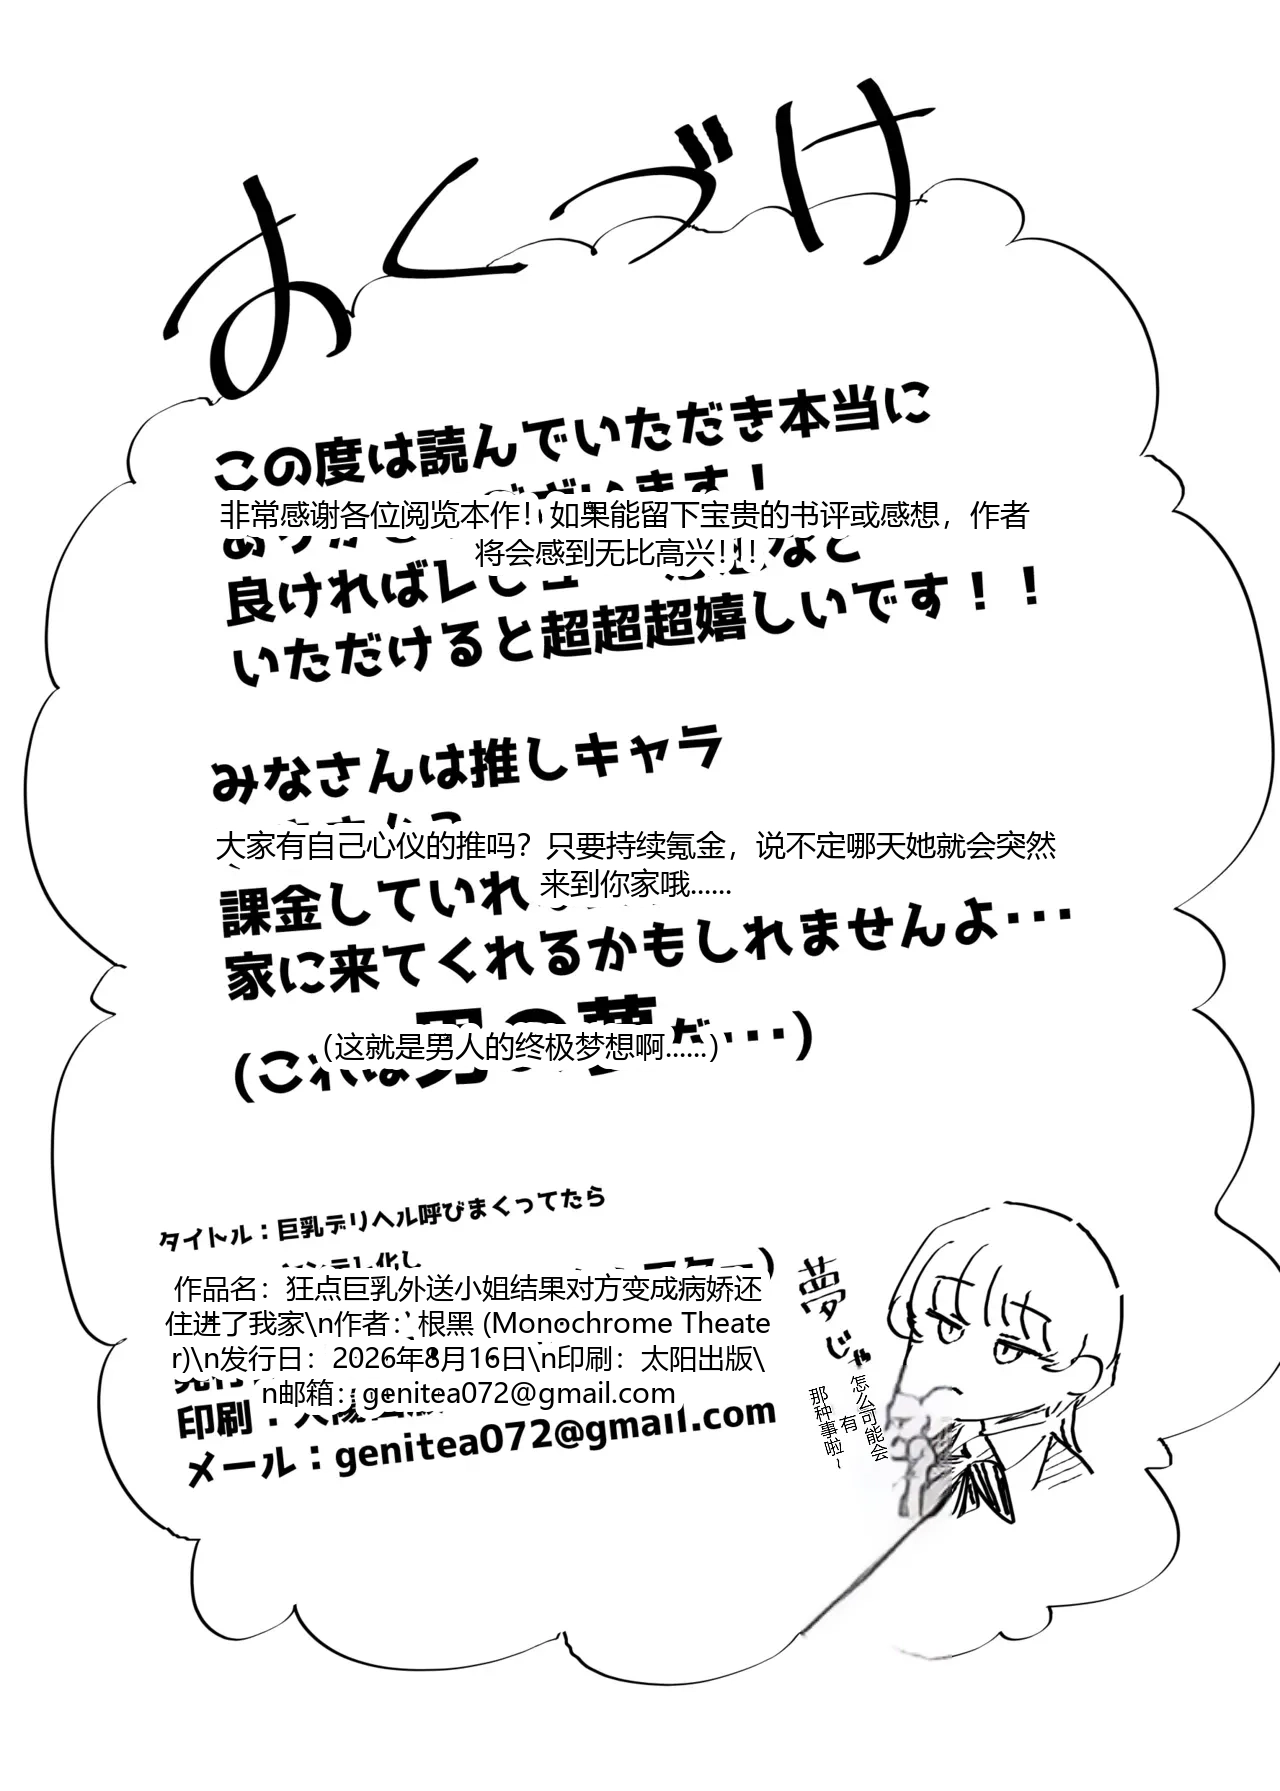 おくづけ
この度は読んでいただき本当に
非常感谢各位阅览本作！如果能留下宝贵的书评或感想，作者
将会感到无比高兴！！
良ければレビュー
など
いただけると超超超嬉しいです！！
みなさんは推しキャラ
大家有自己心仪的推吗？只要持续氪金，说不定哪天她就会突然
来到你家哦......
課金していれ
家に来てくれるかもしれませんよ・・・
（这就是男人的终极梦想啊......）
(これは男の夢だ・・・)
タイトル：巨乳デリヘル呼びまくってたら
作品名：狂点巨乳外送小姐结果对方变成病娇还
住进了我家\n作者：根黑 (Monochrome Theate
r)\n发行日：2026年8月16日\n印刷：太阳出版\
n邮箱：genitea072@gmail.com
印刷：
メール：genitea072@gmail.com
夢じゃ
怎么可能会
有
那种事啦~